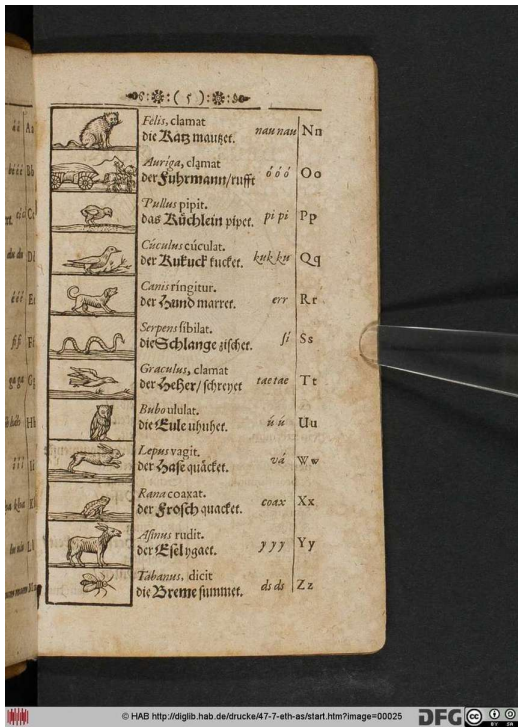 ( 5 )
Felis, clamat
die Katz mautzet. nau nau Nn
Auriga, clamat
der Fuhrmann/rufft ó ó ó Oo
Pullus pipit.
das Küchlein pipet. pi pi Pp
Cúculus cúculat.
der Kukuck kucket. kuk ku Qq
Canis ríngitur.
der Hund marret. err Rr
Serpens sibilat.
die Schlange zischet. sí Ss
Graculus, clamat
der Heher/ schreyet tae tae Tt
Bubo ululat.
die Eule uhuhet. ú ú Uu
Lepus vagit.
der Hase quäcket. vá Ww
Rana coaxat.
der Frosch quacket. coax Xx
Asinus rudit.
der Esel ygaet. y y y Yy
Tabanus, dicit
die Breme summet. ds ds Zz
© HAB http://diglib.hab.de/drucke/47-7-eth-as/start.htm?image=00025
DFG
cc
BY SA